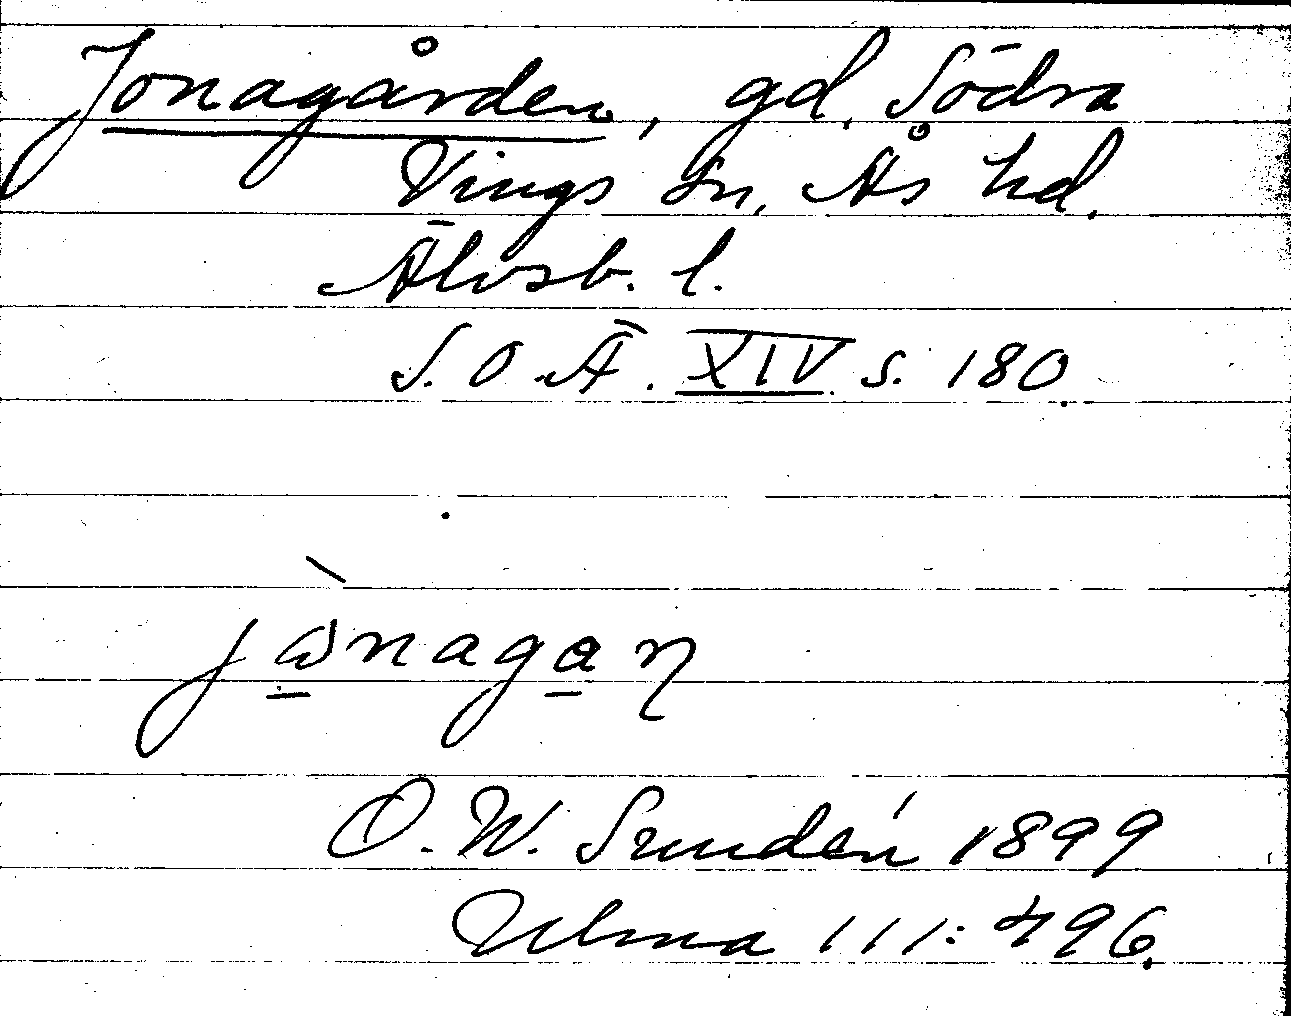 Jonagården, gd, Södra
Vings sn, Ås hd.
Älvsb. l.
S. O. Ä. XIV s. 180.
jɷ̀nagan
O. W. Sundén 1899
Ulma 111: 496.